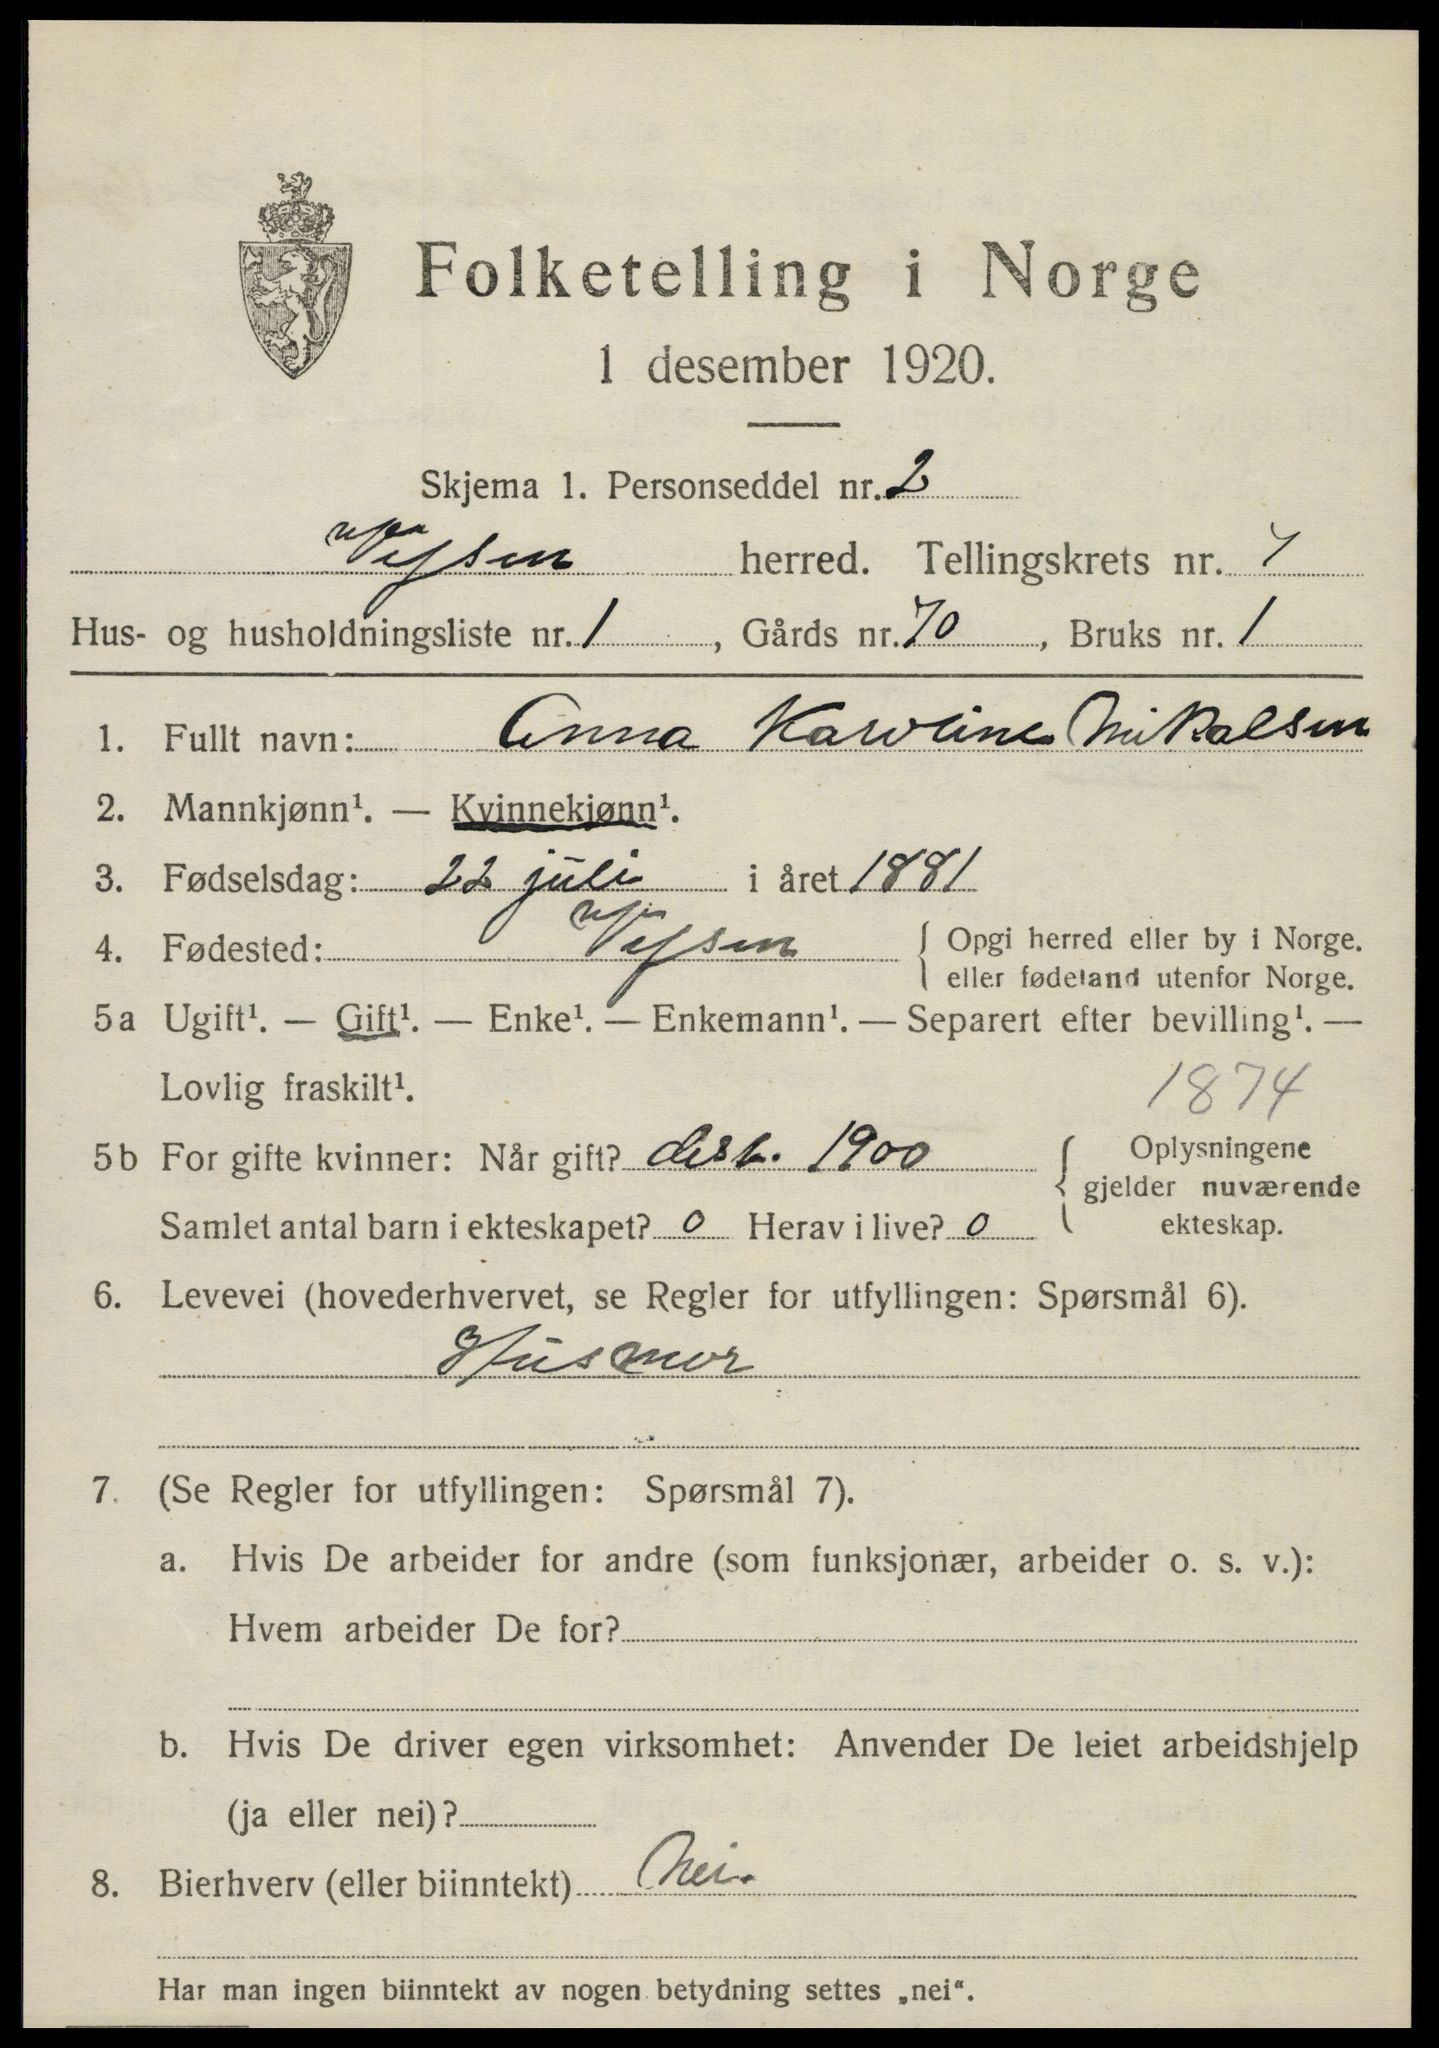 Folketelling i Norge
1 desember 1920.
Skjema 1. Personseddel nr. 2
Vefsen herred. Tellingskrets nr. 7
Hus- og husholdningsliste nr. 1, Gårds nr. 70, Bruks nr. 1
1. Fullt navn: Anna Karoline Mikalsen
2. Mannkjønn¹. — Kvinnekjønn¹.
3. Fødselsdag: 22 juli i året 1881
4. Fødested: Vefsen { Opgi herred eller by i Norge.
eller fødeland utenfor Norge.
5a Ugift¹. — Gift¹. — Enke¹. — Enkemann¹. — Separert efter bevilling¹. —
Lovlig fraskilt¹.
1874
5b For gifte kvinner: Når gift? desb. 1900 { Oplysningene
gjelder nuværende
Samlet antal barn i ekteskapet? 0 Herav i live? 0 ekteskap.
6. Levevei (hovederhvervet, se Regler for utfyllingen: Spørsmål 6).
Husmor
7. (Se Regler for utfyllingen: Spørsmål 7).
a. Hvis De arbeider for andre (som funksjonær, arbeider o. s. v.):
Hvem arbeider De for?
b. Hvis De driver egen virksomhet: Anvender De leiet arbeidshjelp
(ja eller nei)?
8. Bierhverv (eller biinntekt) Nei.
Har man ingen biinntekt av nogen betydning settes „nei“.